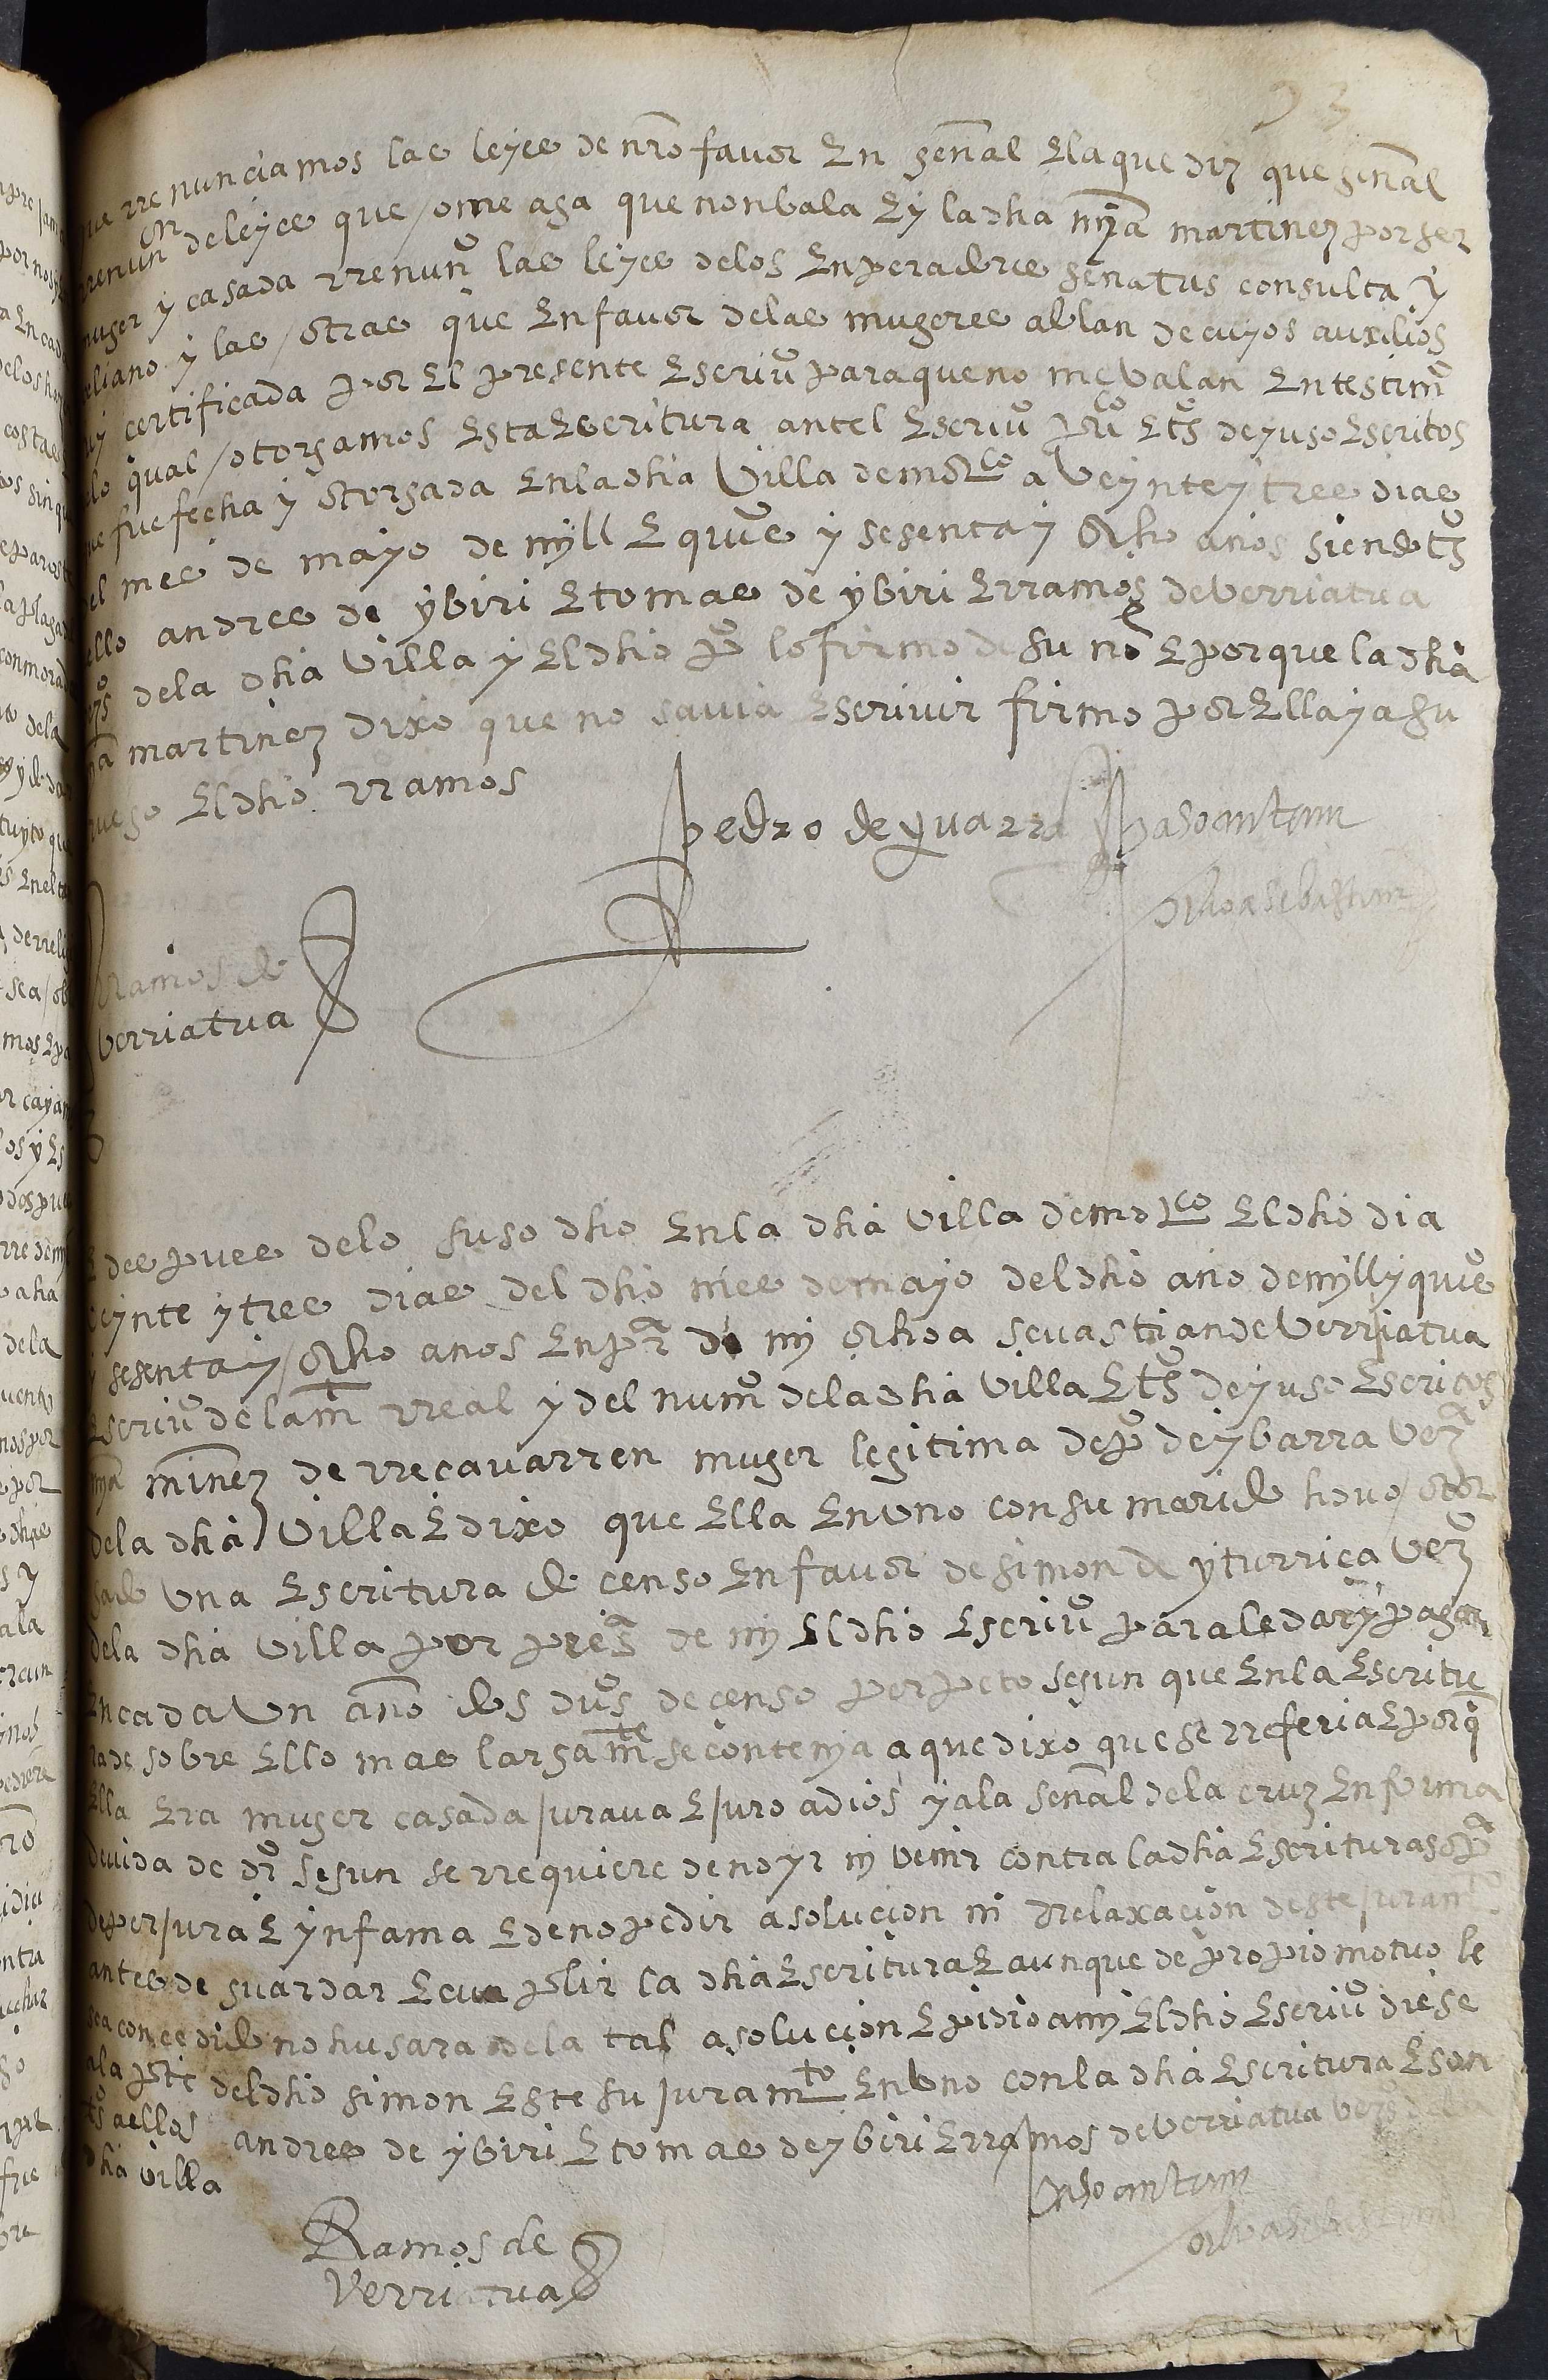 93
que rrenunciamos las leyes de nro favor En general E la que diz que general
rrenunon de leyes que ome aga que non bala E y la dha mya martinez por ser
muger y casada rrenuno las leyes de los Enperadores senatus consulta y
beliano y las otras que En favor de las mugeres ablan de cuyos auxilios
fuy certificada por El presente Escriuo para que no me valan En testimo
de lo qual otorgamos Esta Escritura antel Escriuo puco E ts de yuso Escritos
que fue fecha y otorgada En la dha Villa de mo a Veynte y tres dias
del mes de mayo de myll E quios y sesenta y ocho años siendo ts
a ello andres de ybiri E tomas de ybiri E rramos de verriatua
vezos de la dha villa y El dho po lo firmo de su ne E porque la dha
mya martinez dixo que no savia Escrivir firmo por Ella y a su
rruego El dho rramos
pedro de yvarra Paso ante my
Ochoa Sebastian
Ramos de
verriatua
E despues de lo suso dho En la dha villa de mo El dho dia
veynte y tres dias del dho mes de mayo del dho año de myll y quios
y sesenta y ocho años En pra de my ochoa sevastian de Verriatua
Escriuo de la mt rreal y del numo de la dha villa E ts de yuso Escritos
mya minez de rrecavarren muger legitima de po de ybarra veza
de la dha villa E dixo que Ella En vno con su marido hovo otor
gado vna Escritura de censo En favor de simon de yturriça vezo
de la dha villa por presa de my El dho Escriuo para le dar y pagar
En cada Vn año dos dus de censo perpeto segun que En la Escritu
ra de sobre Ello mas largamte se contenya a que dixo que se rreferia E porq
Ella Era muger casada jurava E juro a dios y a la señal de la cruz En forma
devida de dro segun se rrequiere de no yr ny venir contra la dha Escritura so pa
de perjura E ynfama E de no pedir asoluçion ni rrelaxaçion deste juramto
antes de guardar E cunplir la dha Escritura E aunque de propio motuo le
sea concedido no husara de la tal asoluçion E pidio a my El dho Escriuo diese
a la pte del dho simon Este su juramto En vno con la dha Escritura E son
ts a ellos andres de ybiri E tomas de ybiri E rramos de verriatua vezos de la
dha villa
Paso ante my
Ochoa Sebastian
Ramos de
Verriatua